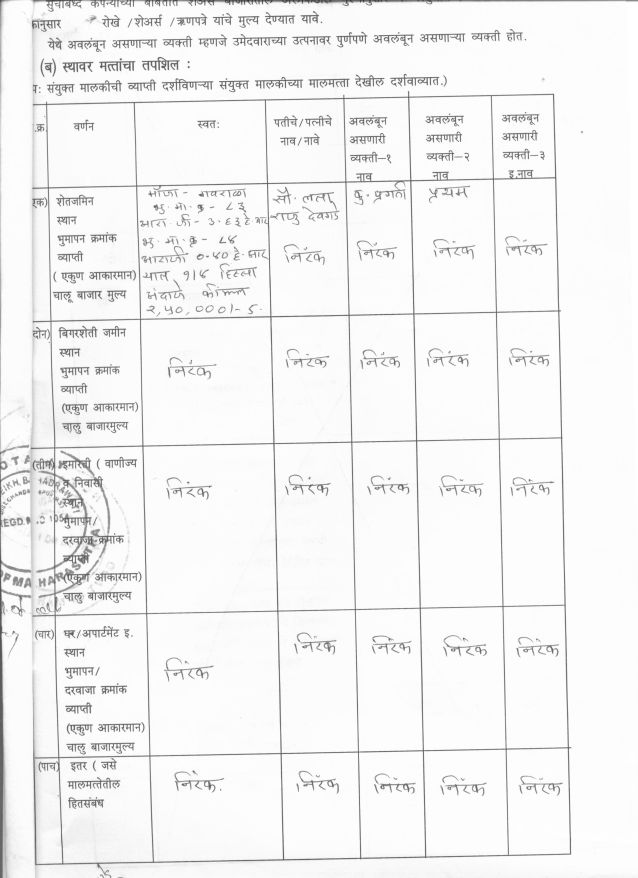 सुचीबध्द कंपन्यांच्या बाबतीत शेअर बाजारातील
कानुसार रोखे /शेअर्स /ऋणपत्रे यांचे मुल्य देण्यात यावे.
येथे अवलंबून असणाऱ्या व्यक्ती म्हणजे उमेदवाराच्या उत्पनावर पुर्णपणे अवलंबून असणाऱ्या व्यक्ती होत.
(ब) स्थावर मत्तांचा तपशिल :
प: संयुक्त मालकीची व्याप्ती दर्शविणऱ्या संयुक्त मालकीच्या मालमत्ता देखील दर्शवाव्यात.)
.क्र. वर्णन स्वत: पतीचे/पत्नीचे अवलंबून अवलंबून अवलंबून
नाव/नावे असणारी असणारी असणारी
व्यक्ती-१ व्यक्ती-२ व्यक्ती-३
नाव नाव इ.नाव
एक) शेतजमिन
स्थान
भुमापन क्रमांक
व्याप्ती
( एकुण आकारमान)
चालू बाजार मुल्य
मौजा - गवराळा
भु. मा. क्र - ८३
आरा. जी - ३.६३ हे. आर
भु. मा. क्र - ८४
आराजी ०.४० हे. आर
यात १/४ हिस्सा
अंदाजे किंमत
२,५०,०००/- रु.
सौ. लता
राजु देवगडे
निरंक
कु. प्रगती
निरंक
प्रथम
निरंक
निरंक
दोन) बिगरशेती जमीन
स्थान
भुमापन क्रमांक
व्याप्ती
(एकुण आकारमान)
चालु बाजारमुल्य
निरंक निरंक निरंक निरंक निरंक
(तीन) इमारती ( वाणीज्य
व निवासी
स्थान
भुमापन/
दरवाजा क्रमांक
व्याप्ती
(एकुण आकारमान)
चालु बाजारमुल्य
निरंक निरंक निरंक निरंक निरंक
REGD.
MAHARASHTRA
(चार) घर/अपार्टमेंट इ.
स्थान
भुमापन/
दरवाजा क्रमांक
व्याप्ती
(एकुण आकारमान)
चालु बाजारमुल्य
निरंक निरंक निरंक निरंक निरंक
(पाच) इतर ( जसे
मालमत्तेतील
हितसंबंध
निरंक. निरंक निरंक निरंक निरंक